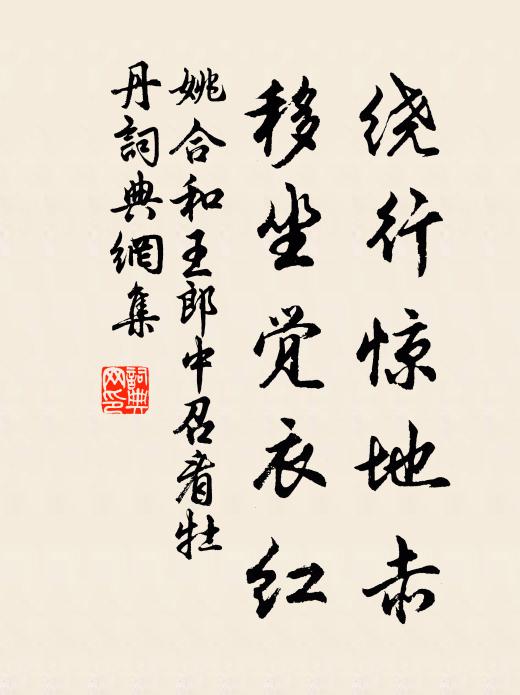 绕行惊地赤
移坐觉衣红
姚合和王郎中召看牡
丹詞典網集
詞典
网印